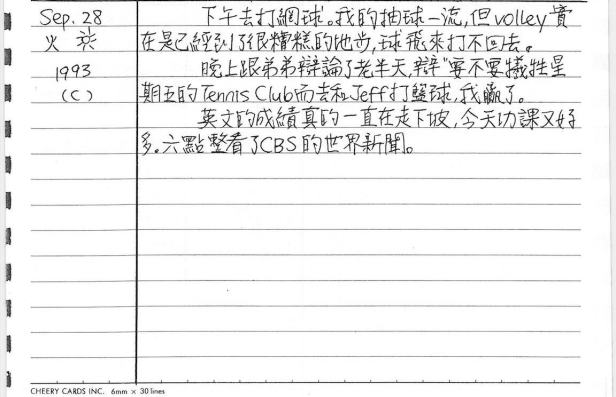 Sep. 28
火 炎
1993
(C)
下午去打網球。我的抽球一流,但volley實
在是已經到了很糟糕的地步,球飛來打不回去。
晚上跟弟弟辯論了老半天,辯"要不要犧牲星
期五的Tennis Club而去和Jeff打壘球,我贏了。
英文的成績真的一直在走下坡,今天功課又好
多。六點整看了CBS的世界新聞。
CHEERY CARDS INC. 6mm × 30 lines